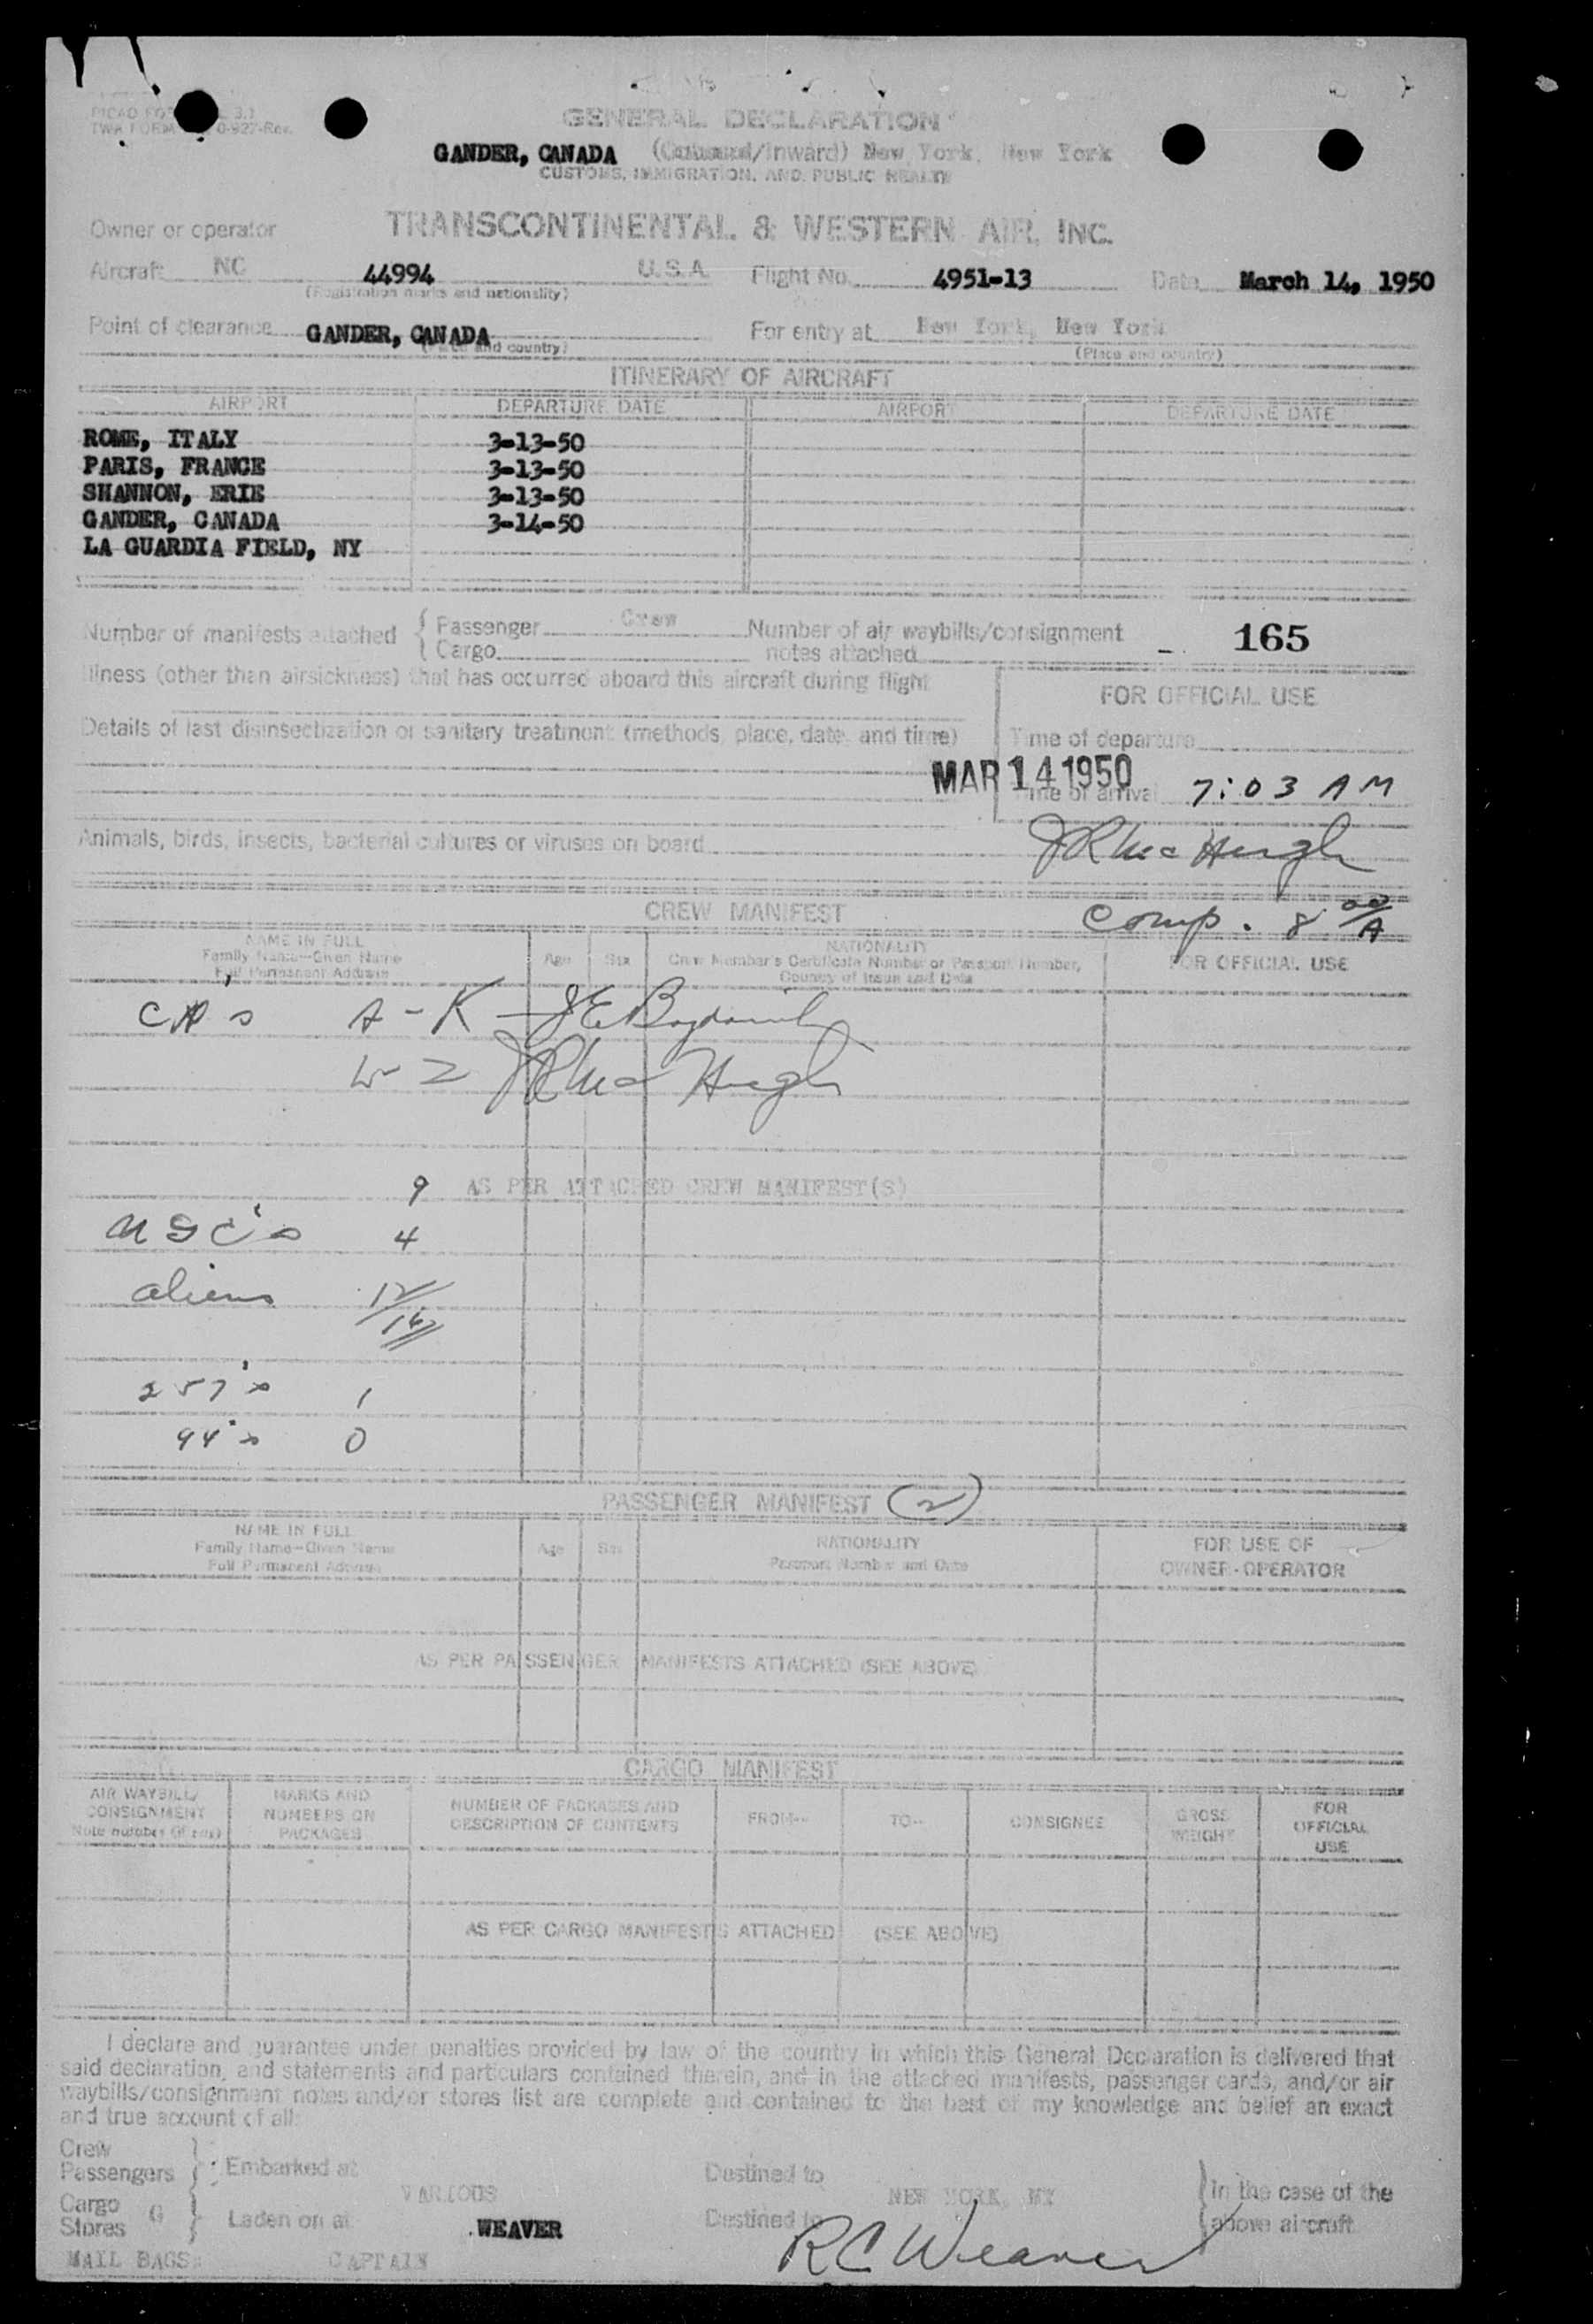 GENERAL DECLARATION
GANDER, CANADA (Outward/Inward) New York, New York
CUSTOMS, IMMIGRATION, AND PUBLIC HEALTH
Owner or operator TRANSCONTINENTAL & WESTERN AIR, INC.
Aircraft NC 44994 U.S.A. Flight No. 4951-13 Date March 14, 1950
(Registration marks and nationality)
Point of clearance GANDER, CANADA For entry at New York, New York
(Place and country) (Place and country)
ITINERARY OF AIRCRAFT
AIRPORT DEPARTURE DATE AIRPORT DEPARTURE DATE
ROME, ITALY 3-13-50
PARIS, FRANCE 3-13-50
SHANNON, ERIE 3-13-50
GANDER, CANADA 3-14-50
LA GUARDIA FIELD, NY
Number of manifests attached { Passenger Crew Number of air waybills/consignment - 165
Cargo notes attached
Illness (other than airsickness) that has occurred aboard this aircraft during flight
FOR OFFICIAL USE
Details of last disinsectization or sanitary treatment (methods, place, date, and time) Time of departure
MAR 14 1950 Time of arrival 7:03 AM
Animals, birds, insects, bacterial cultures or viruses on board
CREW MANIFEST Comp. 8 00/A
NAME IN FULL
Family Name—Given Name
Full Permanent Address
Age Sex
NATIONALITY
Crew Member's Certificate Number or Passport Number,
Country of Issue and Date
FOR OFFICIAL USE
A - K
9 AS PER ATTACHED CREW MANIFEST(S)
USC's 4
aliens 12
16
257's 1
94's 0
PASSENGER MANIFEST (2)
NAME IN FULL
Family Name—Given Name
Full Permanent Address
Age Sex
NATIONALITY
Passport Number and Date
FOR USE OF
OWNER-OPERATOR
AS PER PASSENGER MANIFESTS ATTACHED (SEE ABOVE)
CARGO MANIFEST
AIR WAYBILL/
CONSIGNMENT
Note number (if any)
MARKS AND
NUMBERS ON
PACKAGES
NUMBER OF PACKAGES AND
DESCRIPTION OF CONTENTS
FROM— TO— CONSIGNEE
GROSS
WEIGHT
FOR
OFFICIAL
USE
AS PER CARGO MANIFESTS ATTACHED (SEE ABOVE)
I declare and guarantee under penalties provided by law of the country in which this General Declaration is delivered that
said declaration, and statements and particulars contained therein, and in the attached manifests, passenger cards, and/or air
waybills/consignment notes and/or stores list are complete and contained to the best of my knowledge and belief an exact
and true account of all:
Crew
Passengers } : Embarked at VARIOUS Destined to NEW YORK, NY } in the case of the
Cargo
Stores G } Laden on at Destined to above aircraft
WEAVER RC Weaver
MAIL BAGS: CAPTAIN